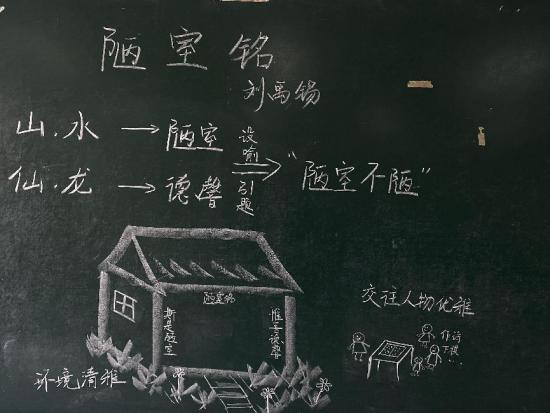 陋室铭
刘禹锡
山、水 → 陋室
仙、龙 → 德馨
设喻
引题
“陋室不陋”
陋室铭
斯是陋室
惟吾德馨
环境清雅
交往人物优雅
作诗
下棋
……